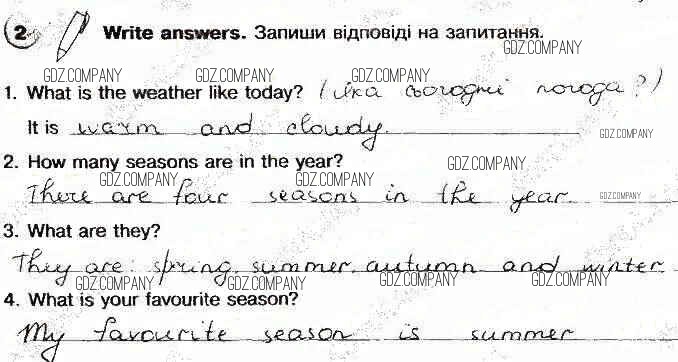 2 Write answers. Запиши відповіді на запитання.
GDZ.COMPANY
GDZ.COMPANY GDZ.COMPANY GDZ.COMPANY GDZ.COMPANY
1. What is the weather like today? (яка сьогодні погода?)
It is warm and cloudy. GDZ.COMPANY
2. How many seasons are in the year? GDZ.COMPANY
GDZ.COMPANY GDZ.COMPANY
There are four seasons in the year. GDZ.COMPANY
3. What are they?
GDZ.COMPANY GDZ.COMPANY
They are: spring, summer, autumn and winter.
GDZ.COMPANY GDZ.COMPANY GDZ.COMPANY GDZ.COMPANY
4. What is your favourite season?
My favourite season is summer